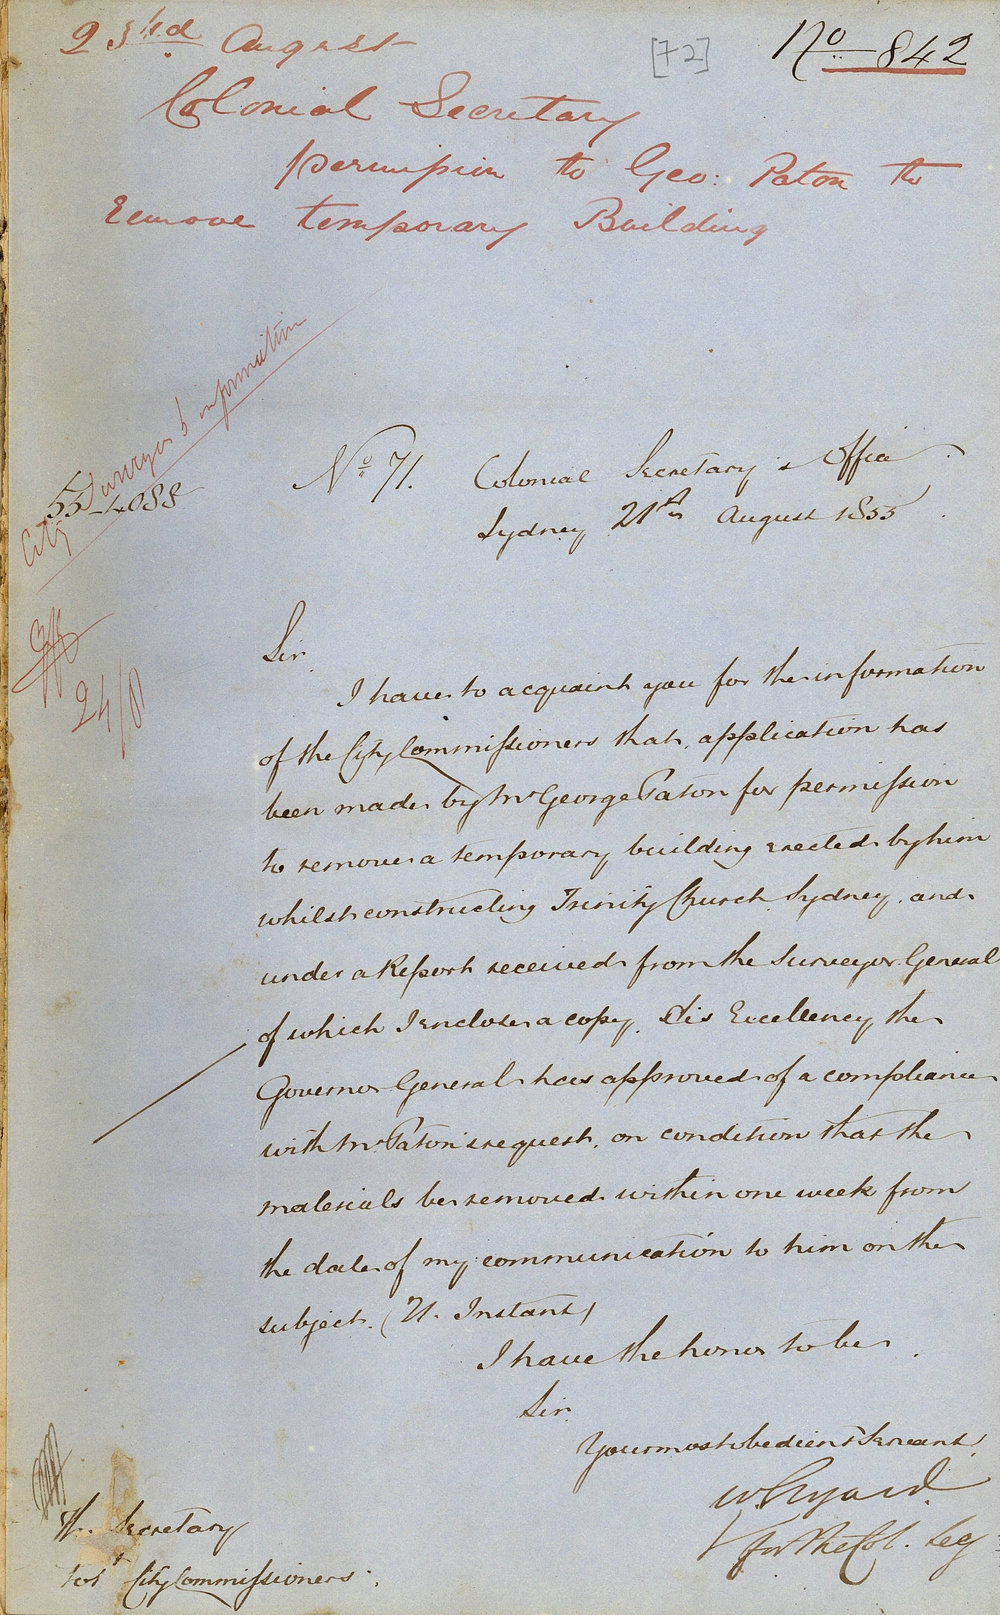 23rd August
[72]
No 842
Colonial Secretary
permission to Geo: Paton to
Remove temporary Building
City Surveyor's information
55-4088
24/8
No 71. Colonial Secretary's Office
Sydney 21st August 1855
Sir
I have to acquaint you for the information
of the City Commissioners that, application has
been made by Mr George Paton for permission
to remove a temporary building erected by him
whilst constructing Trinity Church Sydney, and
under a Report received from the Surveyor General
of which I enclose a copy, His Excellency the
Governor General has approved of a compliance
with Mr Paton's request, on condition that the
materials be removed within one week from
the date of my communication to him on the
subject. (21. Instant)
I have the honor to be
Sir
Your most obedient Servant
for the Col. Secy
The Secretary
to the City Commissioners.